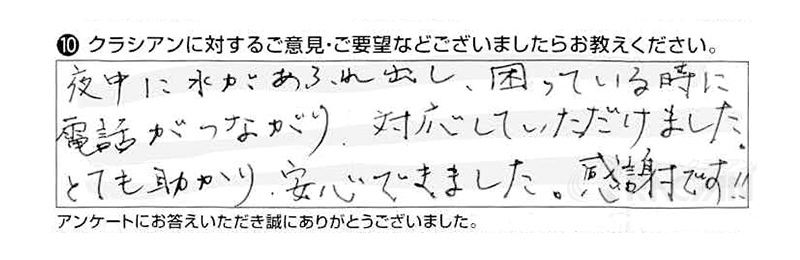 ⑩ クラシアンに対するご意見・ご要望などございましたらお教えください。
夜中に水があふれ出し、困っている時に
電話がつながり、対応していただけました。
とても助かり、安心できました。感謝です!!
アンケートにお答えいただき誠にありがとうございました。